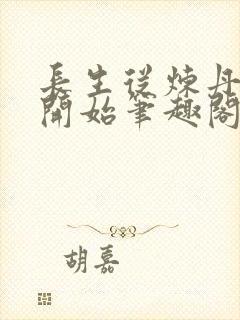 長生從煉丹
開始筆趣閣
胡嘉